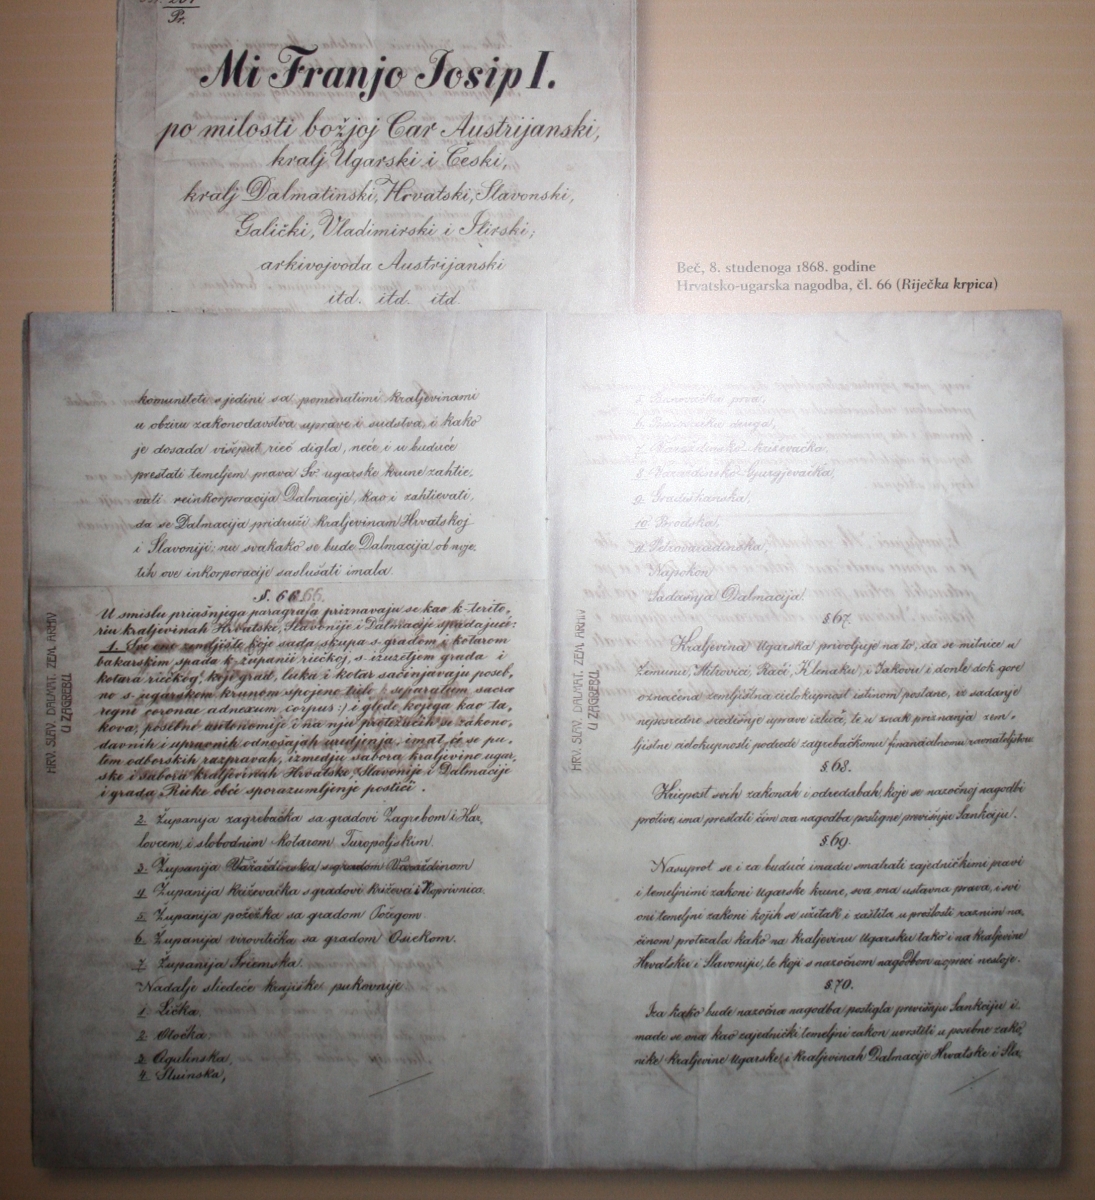 Pr.
Mi Franjo Josip I.
po milosti božjoj Car Austrijanski,
kralj Ugarski i Česki,
kralj Dalmatinski, Hrvatski, Slavonski,
Galički, Vladimirski i Ilirski;
arkivojvoda Austrijanski
itd. itd. itd.
Beč, 8. studenoga 1868. godine
Hrvatsko-ugarska nagodba, čl. 66 (Riječka krpica)
komuniteti sjedini sa pomenutimi kraljevinami
u obziru zakonodavstva uprave i sudstva, i kako
je dosada višeput rieč digla, neće i u buduće
prestati temeljem prava Sv. ugarske krune zahtie,
vati reinkorporacija Dalmacije, kao i zahtievati,
da se Dalmacija pridruži kraljevinam Hrvatskoj
i Slavoniji; nu svakako se bude Dalmacija ob uvje,
tih ove inkorporacije saslušati imala.
§. 66.
U smislu priašnjega paragrafa priznavaju se kao k terito,
riu kraljevinah Hrvatske, Slavonije i Dalmacije spadajući:
1. Sve ono zemljište koje sada skupa s gradom i kotarom
bakarskim spada k županii riečkoj, s izuzetjem grada i
kotara riečkog, koji grad, luka i kotar sačinjavaju poseb,
no s ugarskom krunom spojeno tielo (: separatum sacrae
regni coronae adnexum corpus :) i gljede kojega kao ta,
kova, posebne autonomije i na nju protežućih se zakono,
davnih i upravnih odnošajah uredjenja, imat će se pu,
tem odborskih razpravah, izmedju sabora kraljevine ugar,
ske i sabora kraljevinah Hrvatske, Slavonije i Dalmacije
i grada Rieke obće sporazumljenje postići.
2. Županija zagrebačka sa gradovi Zagrebom i Kar,
lovcem i slobodnim kotarom Turopoljskim.
3. Županija Varaždinska s gradom Varaždinom
4. Županija križevačka s gradovi Križevci i Koprivnica.
5. Županija požežka sa gradom Požegom.
6. Županija virovitička sa gradom Osiekom.
7. Županija Sriemska.
Nadalje sliedeće krajiške pukovnije
1. Lička.
2. Otočka.
3. Ogulinska,
4. Sluinska,
HRV. SLAV. DALMAT. ZEM. ARHIV
U ZAGREBU.
5. Banovačka prva,
6. Banovačka druga,
7. Varaždinsko-Križevačka,
8. Varaždinsko-Gjurgjevačka,
9. Gradiškanska,
10. Brodska,
11. Petrovaradinska,
Napokon
Sadašnja Dalmacija.
§ 67.
Kraljevina Ugarska privoljuje na to, da se mitnice u
Zemunu, Mitrovici, Rači, Klenaku i Jakovu i donle dok gore
označena zemljištna cielokupnost istinom postane, iz sadanje
neposredne središnje uprave izluče, te u znak priznanja zem,
ljištne cielokupnosti podrede zagrebačkomu financialnomu ravnateljstvu
§. 68.
Kriepost svih zakonah i odredabah, koje se nazočnoj nagodbi
protive, ima prestati čim ova nagodba postigne previšnju Sankciju.
§. 69.
Nasuprot se i za buduće imadu smatrati zajedničkimi pravi
i temeljnimi zakoni Ugarske krune, sva ona ustavna prava, i svi
oni temeljni zakoni kojih se užitak i zaštita u prošlosti raznim na,
činom protezala kako na kraljevinu Ugarsku tako i na kraljevine
Hrvatsku i Slavoniju, te koji s nazočnom nagodbom u opreci nestoje.
§. 70.
Iza kako bude nazočna nagodba postigla previšnju Sankciju i,
made se ova kao zajednički temeljni zakon uvrstiti u posebne zako,
nike kraljevine Ugarske, i kraljevinah Dalmacije Hrvatske i Sla,
HRV. SLAV. DALMAT. ZEM. ARHIV
U ZAGREBU.